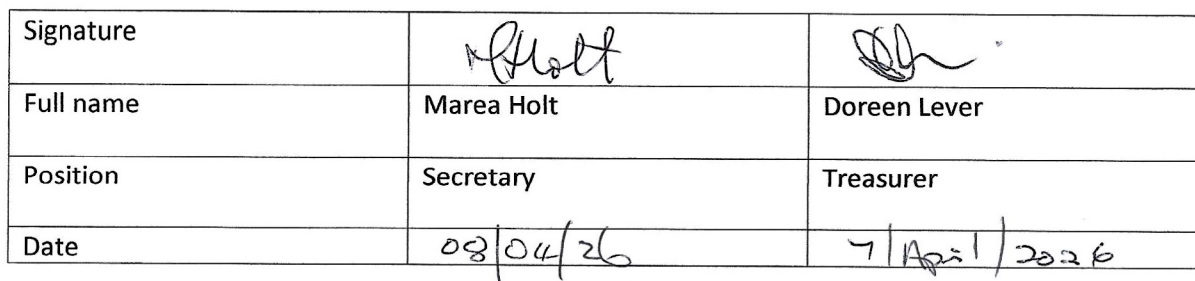 Signature MHolt
Full name Marea Holt Doreen Lever
Position Secretary Treasurer
Date 08/04/26 7/April/2026